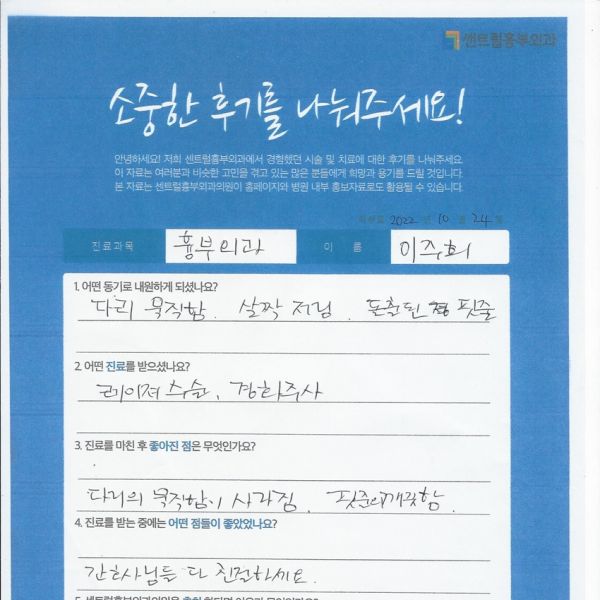 센트럴흉부외과
소중한 후기를 나눠주세요!
안녕하세요! 저희 센트럴흉부외과에서 경험했던 시술 및 치료에 대한 후기를 나눠주세요.
이 자료는 여러분과 비슷한 고민을 겪고 있는 많은 분들에게 희망과 용기를 드릴 것입니다.
본 자료는 센트럴흉부외과의원이 홈페이지와 병원 내부 홍보자료로도 활용될 수 있습니다.
2022 년 10 월 24 일
진료과목 흉부외과 이 름 이주희
1. 어떤 동기로 내원하게 되셨나요?
다리 묵직함. 살짝 저림. 돌출된 핏줄
2. 어떤 진료를 받으셨나요?
레이져수술, 경화주사
3. 진료를 마친 후 좋아진 점은 무엇인가요?
다리의 묵직함이 사라짐. 핏줄의깨끗함.
4. 진료를 받는 중에는 어떤 점들이 좋았었나요?
간호사님들 다 친절하세요.